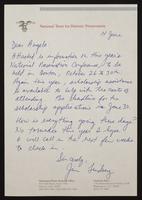 National Trust for Historic Preservation
14 June
Dear Angela
Attached is information on this year's
National Preservation Conference, to be
held in Boston, October 26 to 30th.
Again this year, scholarship assistance
is available to help with the costs of
attending. The deadline for the
scholarship applications is June 30.
How is everything going these days?
No tornados this year I hope. I
will call in the next few weeks
to check in.
Sincerely,
Jim Lindberg